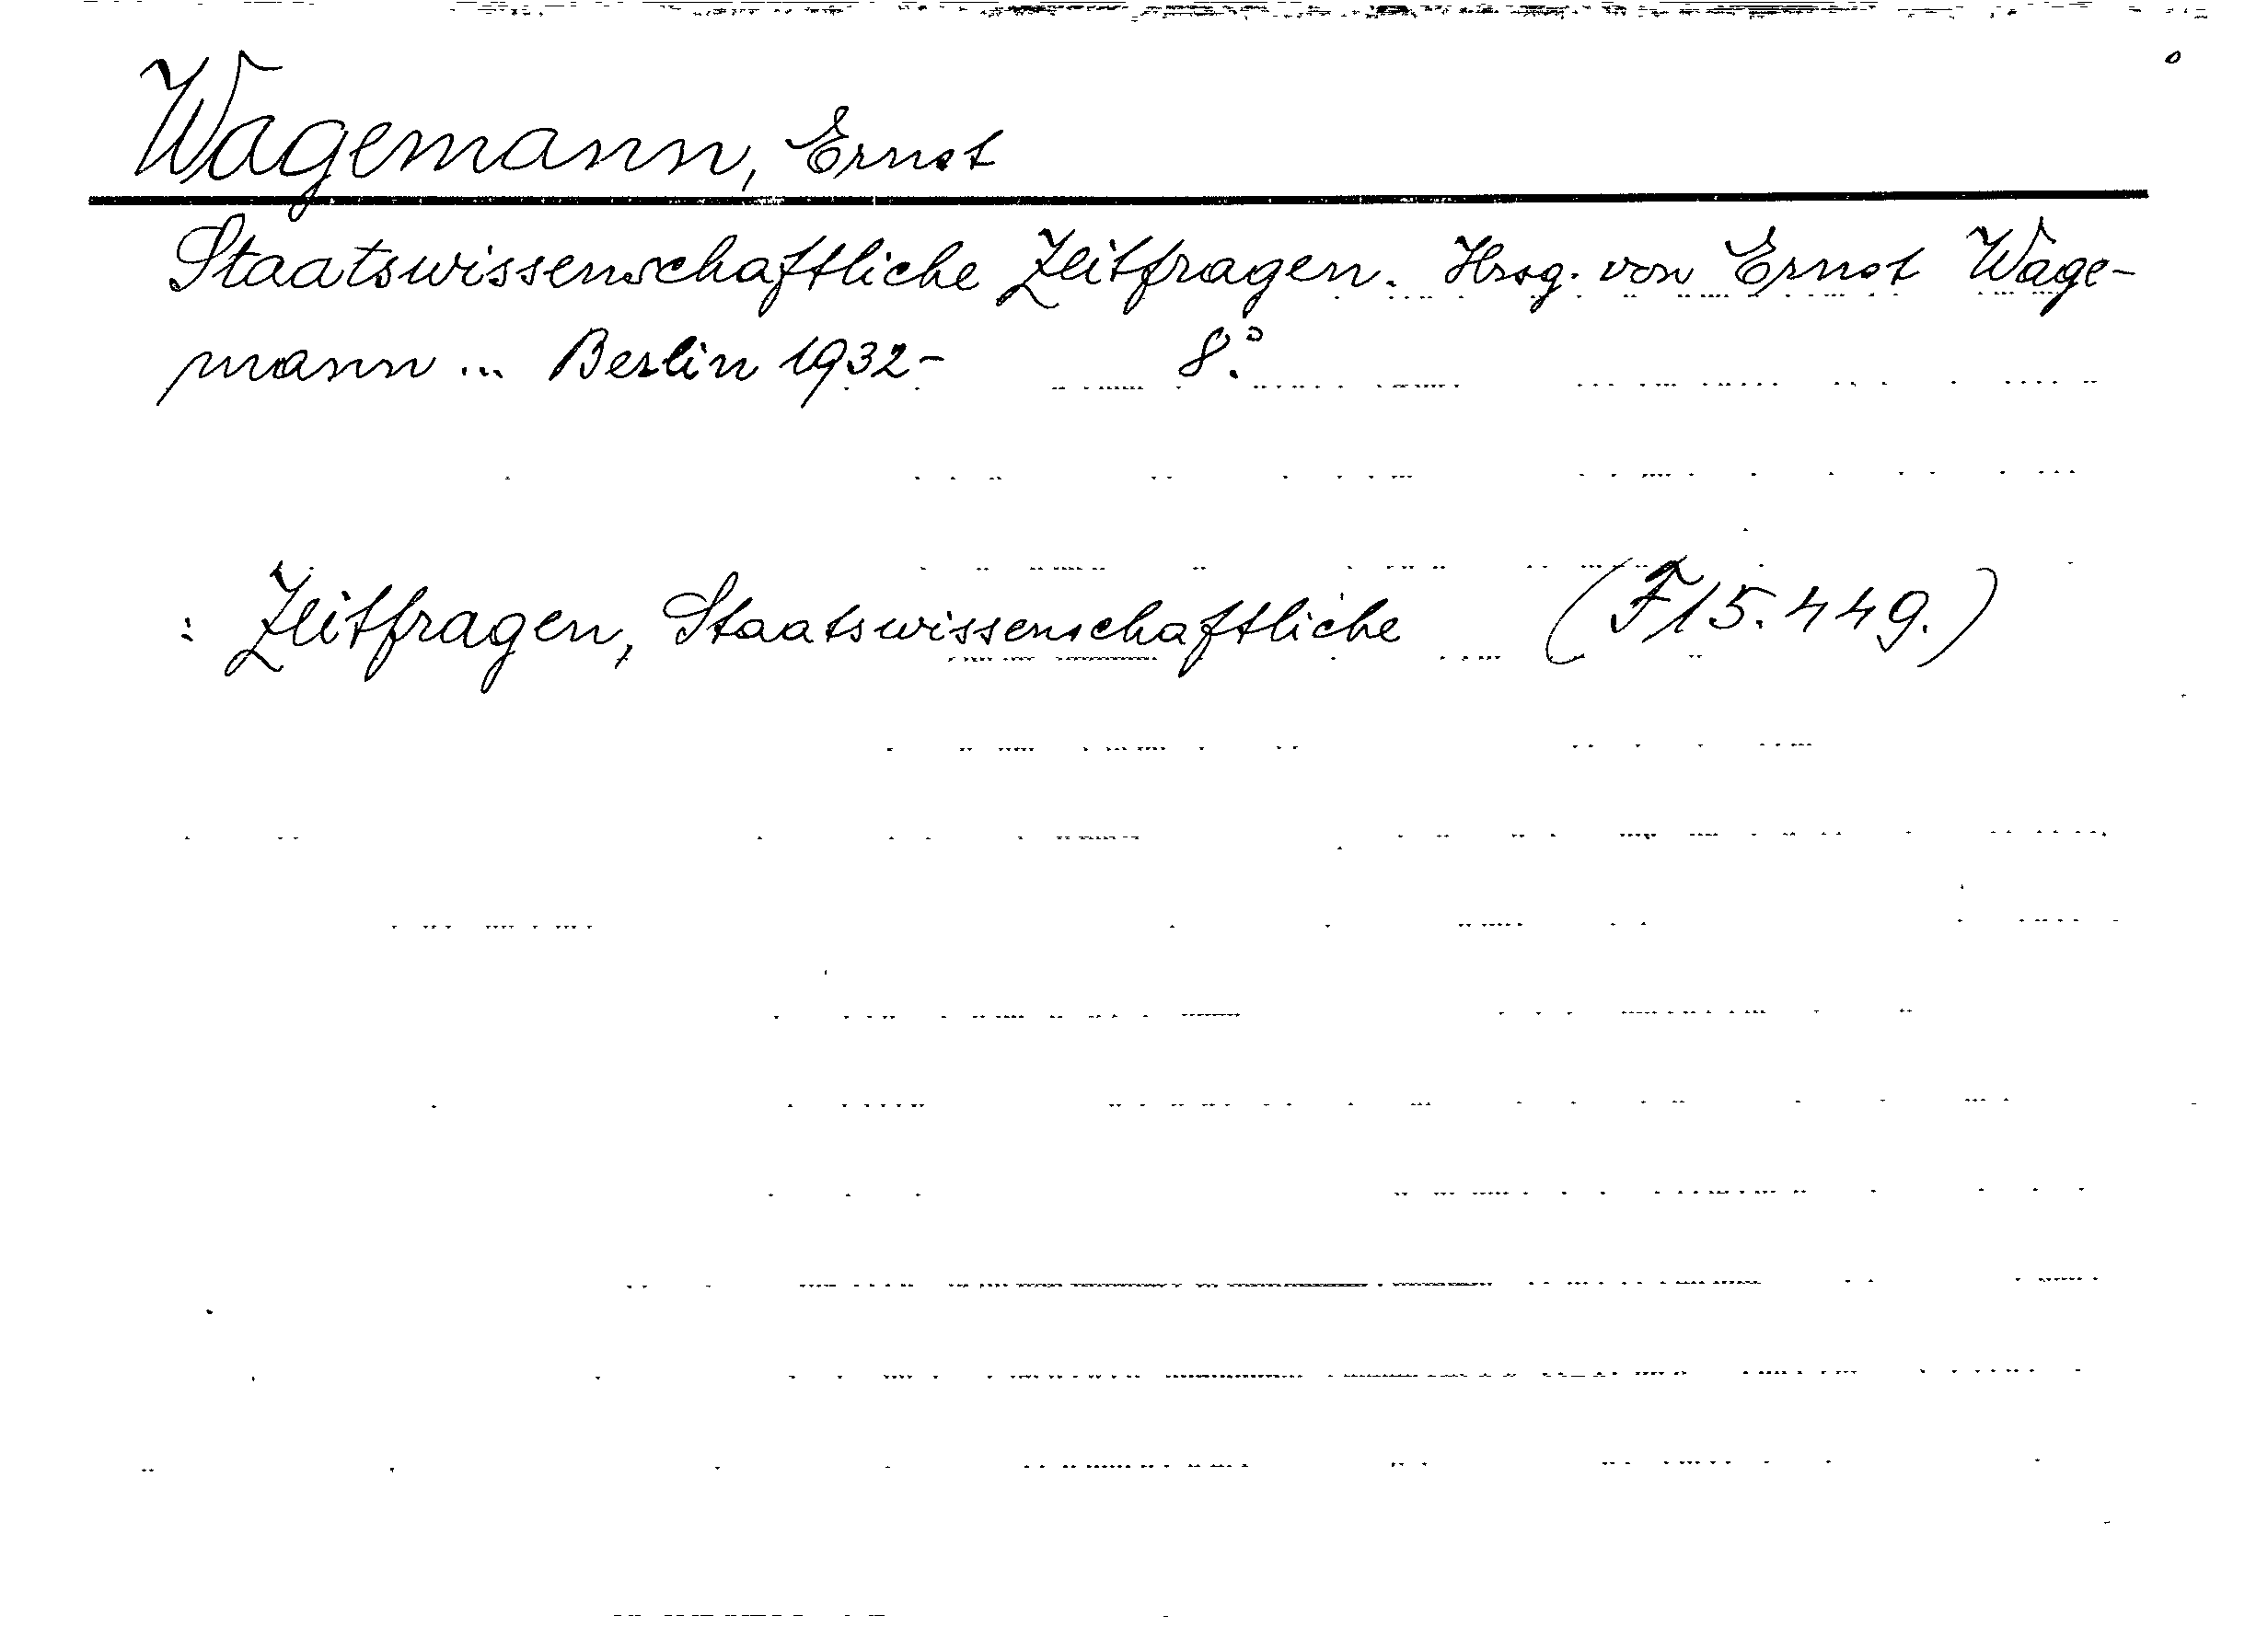 Wagemann, Ernst
Staatswissenschaftliche Zeitfragen. Hrsg. von Ernst Wage-
mann ... Berlin 1932- 8°.
: Zeitfragen, Staatswissenschaftliche (F 15.449.)